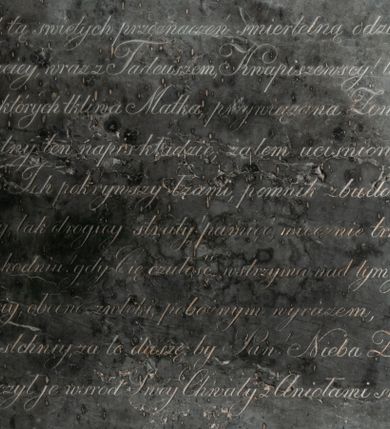 tą świętych przeznaczeń śmiertelną odzi
wraz z Tadeuszem, Kwapiszewscy!
których tkliwa Matka, przywiązana Żon
ten napis kładzie, żalem uciśnion
Ich pokrywszy łzami, pomnik zbud
tak drogiey straty pamięć wiecznie tr
gdy Cię czułość wstrzyma nad tym
zwłoki pobożnym wyrazem,
westchniy za tę duszę by Pan Nieba
wśród Swey Chwały z Aniołami